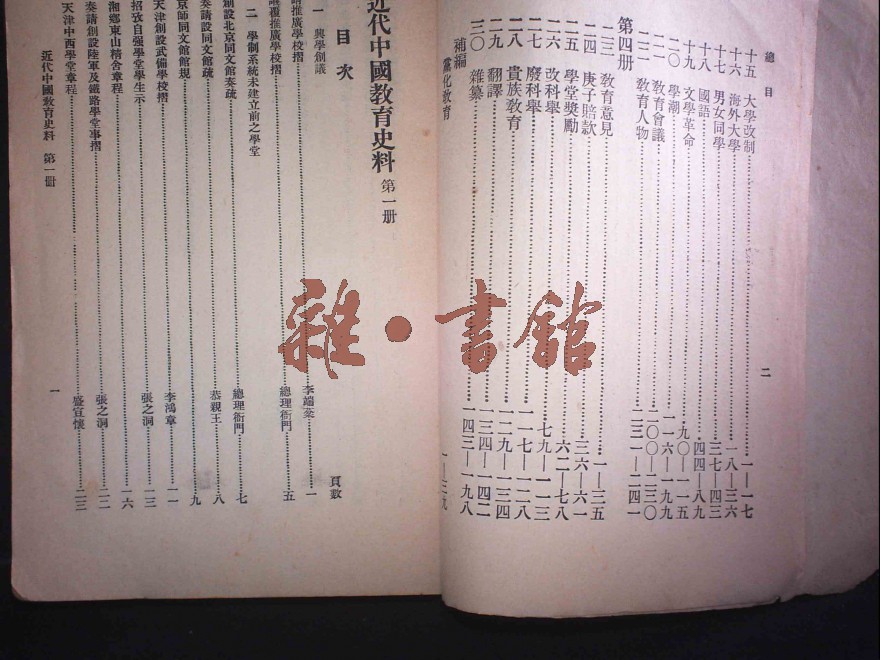 總目
十五 大學改制 一—一七
十六 海外大學 一八—三六
十七 男女同學 三七—四三
十八 國語 四四—八九
十九 文學革命 九〇—一一五
二〇 學潮 一一六—一九九
二一 教育會議 二〇〇—二三〇
二二 教育人物 二三一—二四一
第四册
二三 教育意見 一—三五
二四 庚子賠款 三六—六一
二五 學堂獎勵 六二—七八
二六 改科舉 七九—一一三
二七 廢科舉
一八 貴族教育 一一七—一二八
二九 翻譯 一二九—一三四
三〇 雜纂 一三四—一四二
補編 一四三—一九八
黨化教育 一—三九
二
近代中國教育史料 第一册
目次
頁數
一 興學創議
請推廣學校摺 李端棻 一
議覆推廣學校摺 總理衙門 五
二 學制系統未建立前之學堂
創設北京同文館奏疏 總理衙門 七
奏請設同文館疏 恭親王 八
京師同文館館規 九
天津創設武備學校摺 李鴻章 一一
招攷自强學堂學生示 張之洞 一三
湘鄉東山精舍章程 一六
奏請創設陸軍及鐵路學堂事摺 張之洞 二二
天津中西學堂章程 盛宣懷 二三
近代中國教育史料 第一册
一
雜·書館